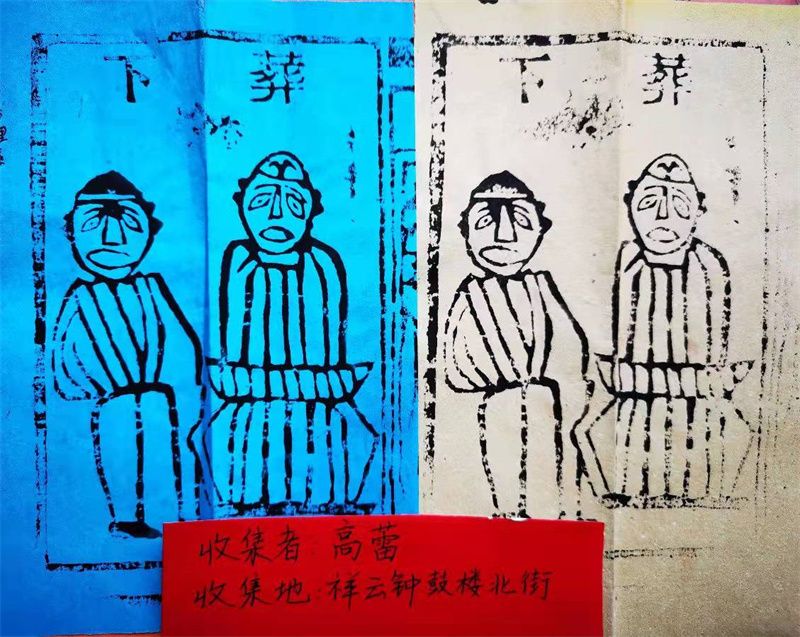 下葬
下葬
收集者:高蕾
收集地:祥云钟鼓楼北街